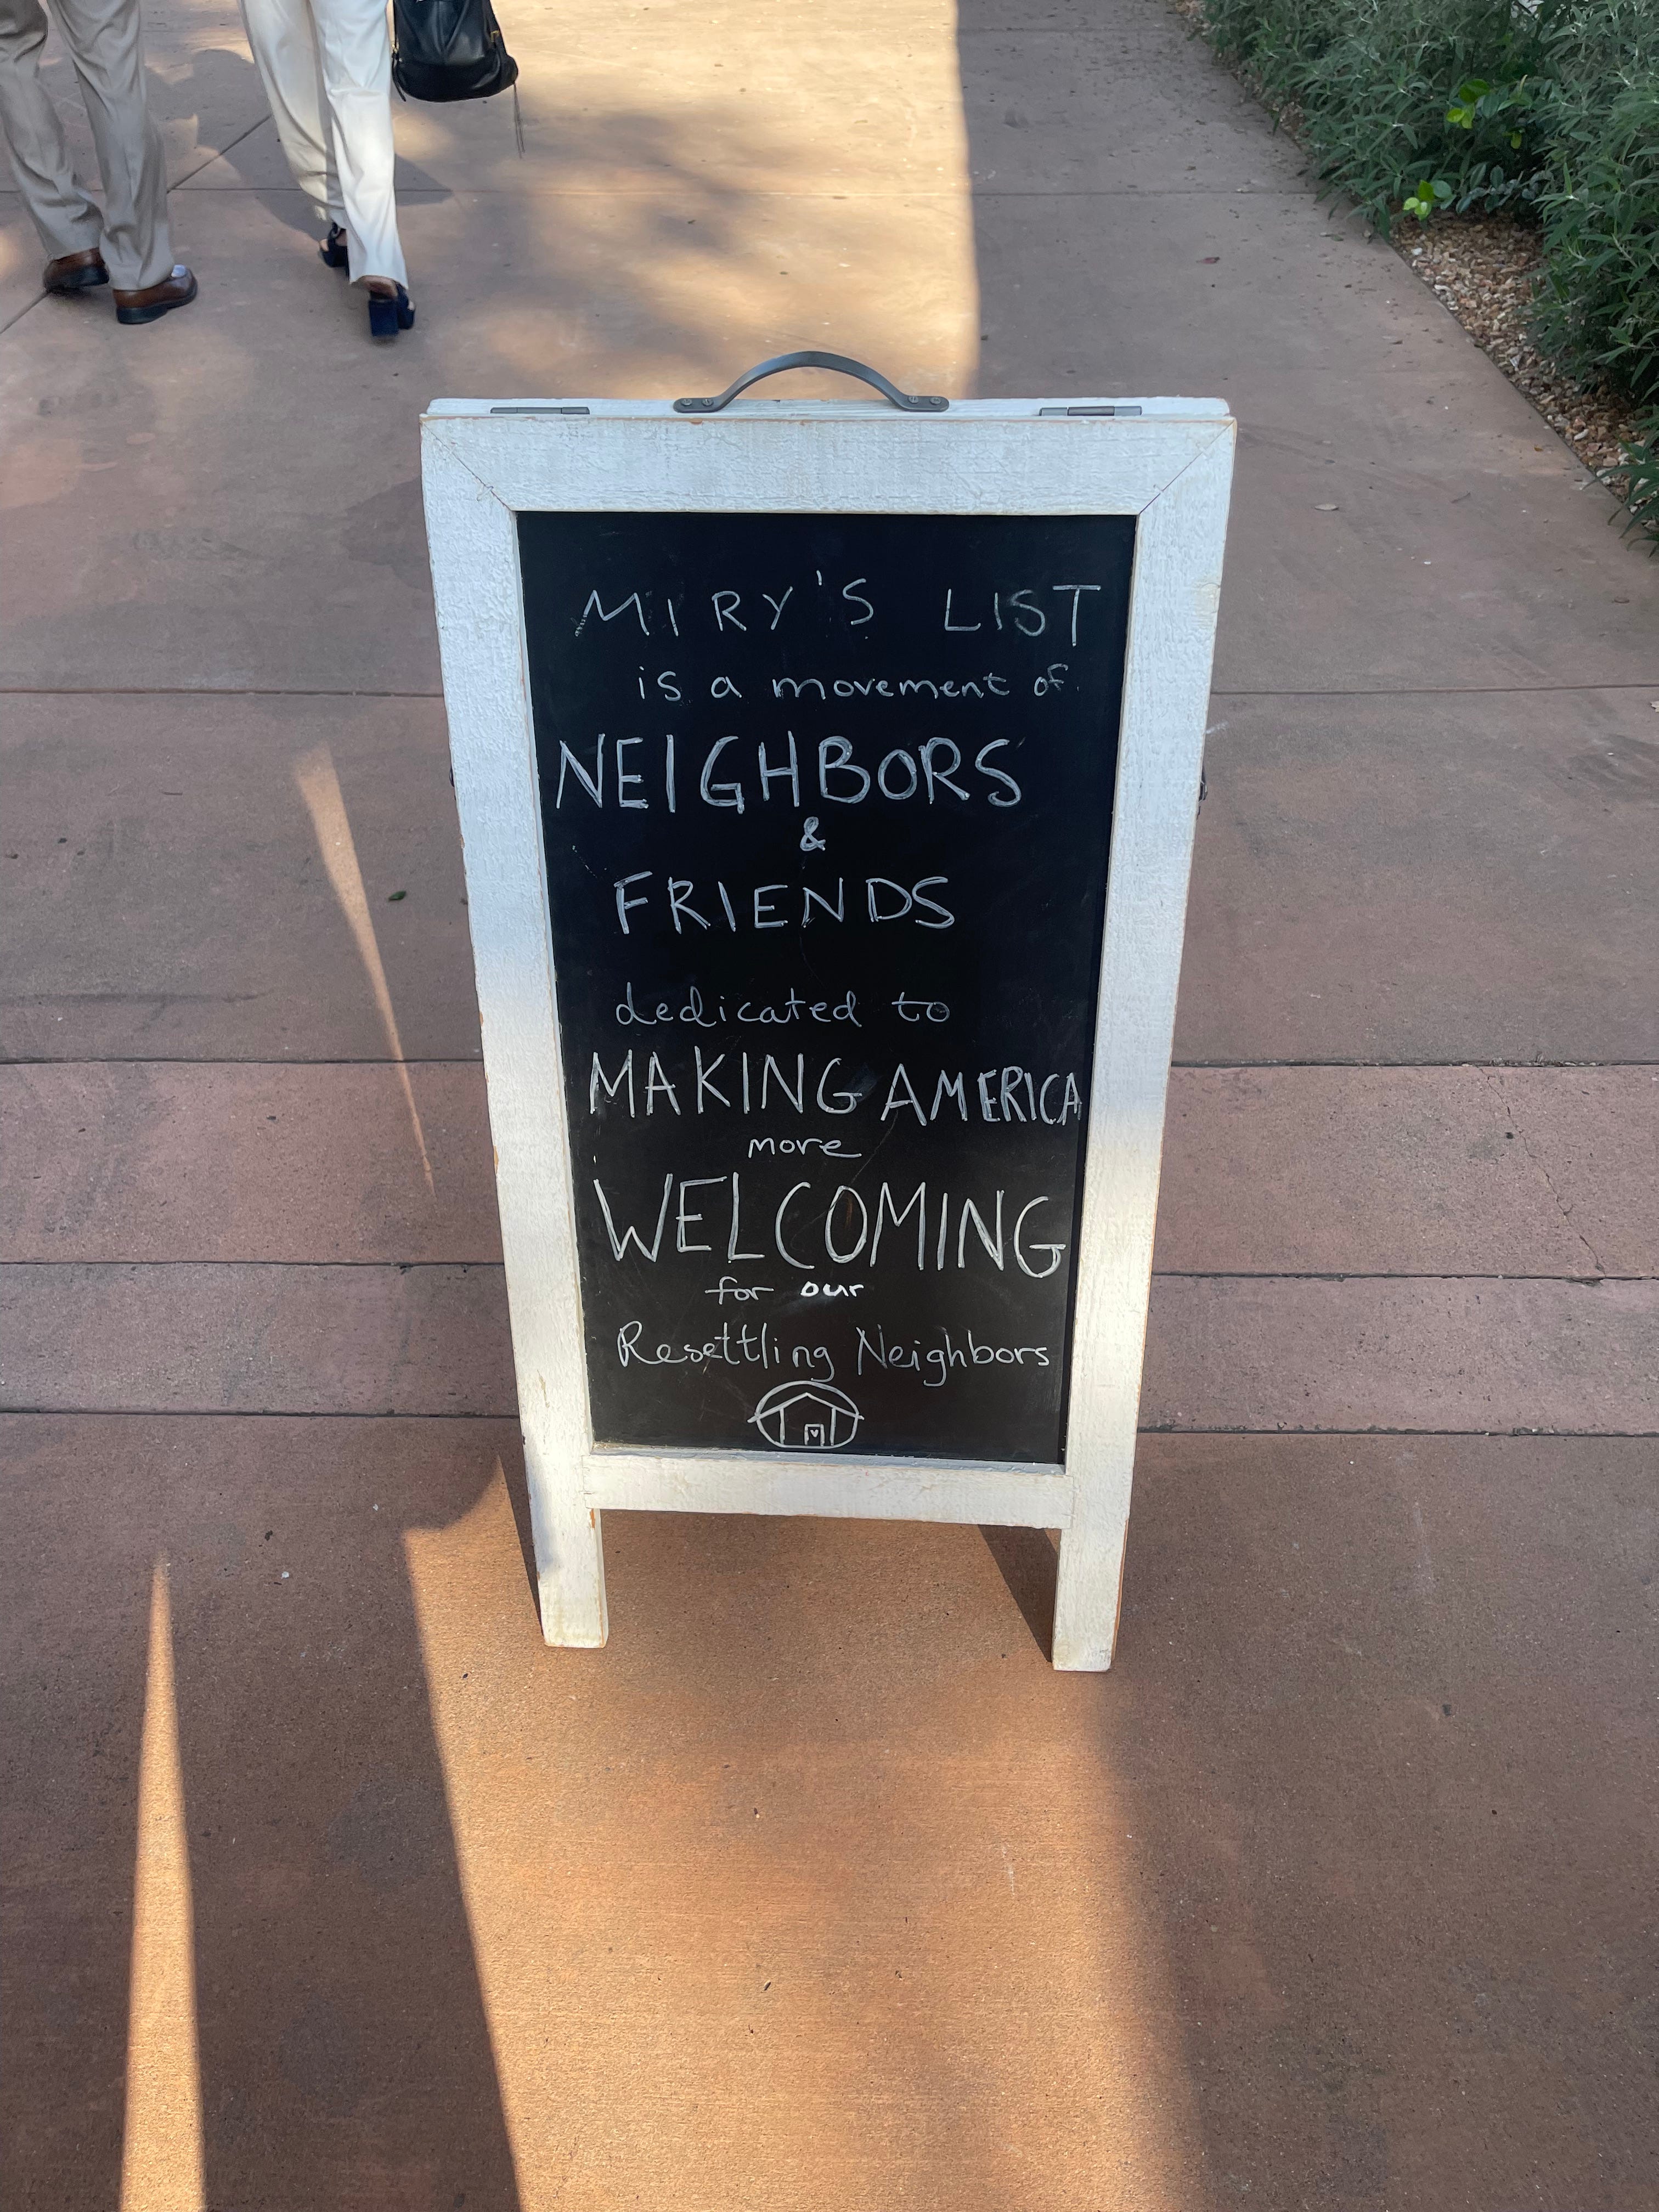 MIRY'S LIST
is a movement of
NEIGHBORS
&
FRIENDS
dedicated to
MAKING AMERICA
more
WELCOMING
for our
Resettling Neighbors